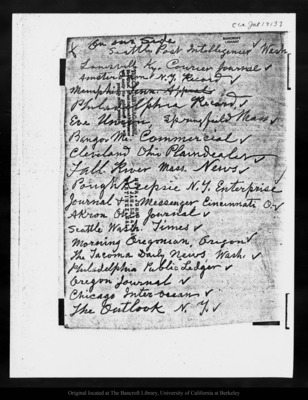 cca Jul 1913?
BANCROFT
LIBRARY
On our Side
X Seattle Post Intelligencer Wash
Louisville Ky. Courier Journal ✓
N.Y. Record ✓
Memphis Tenn Appeal
Philadelphia Record, ✓
Eve Springfield Mass ✓
Bangor Me Commercial ✓
Cleveland Ohio Plaindealer ✓
Fall River Mass. News ✓
Poughkeepsie N.Y. Enterprise
Journal & Messenger Cincinnati O ✓
Akron Ohio Journal ✓
Seattle Wash. Times ✓
Morning Oregonian, Oregon ✓
The Tacoma Daily News Wash. ✓
Philadelphia Public Ledger ✓
Oregon Journal ✓
Chicago Inter-ocean ✓
The Outlook N.Y. ✓
Original located at The Bancroft Library, University of California at Berkeley